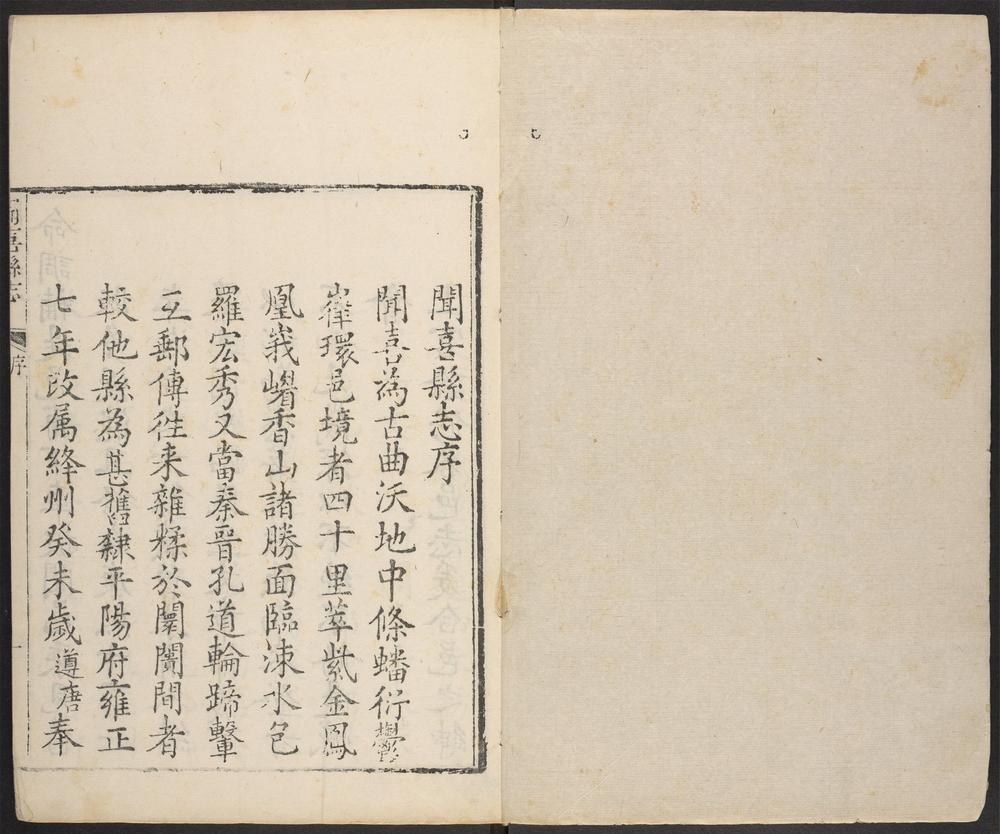 聞喜縣志序
聞喜為古曲沃地中條蟠衍鬱
嵂環邑境者四十里萃紫金鳳
凰峩嵋香山諸勝面臨涑水包
羅宏秀又當秦晉孔道輪蹄轚
互郵傳徃来雜糅於闤闠間者
較他縣為甚舊隸平陽府雍正
七年改属絳州癸未歲遵唐奉
聞喜縣志
序
一